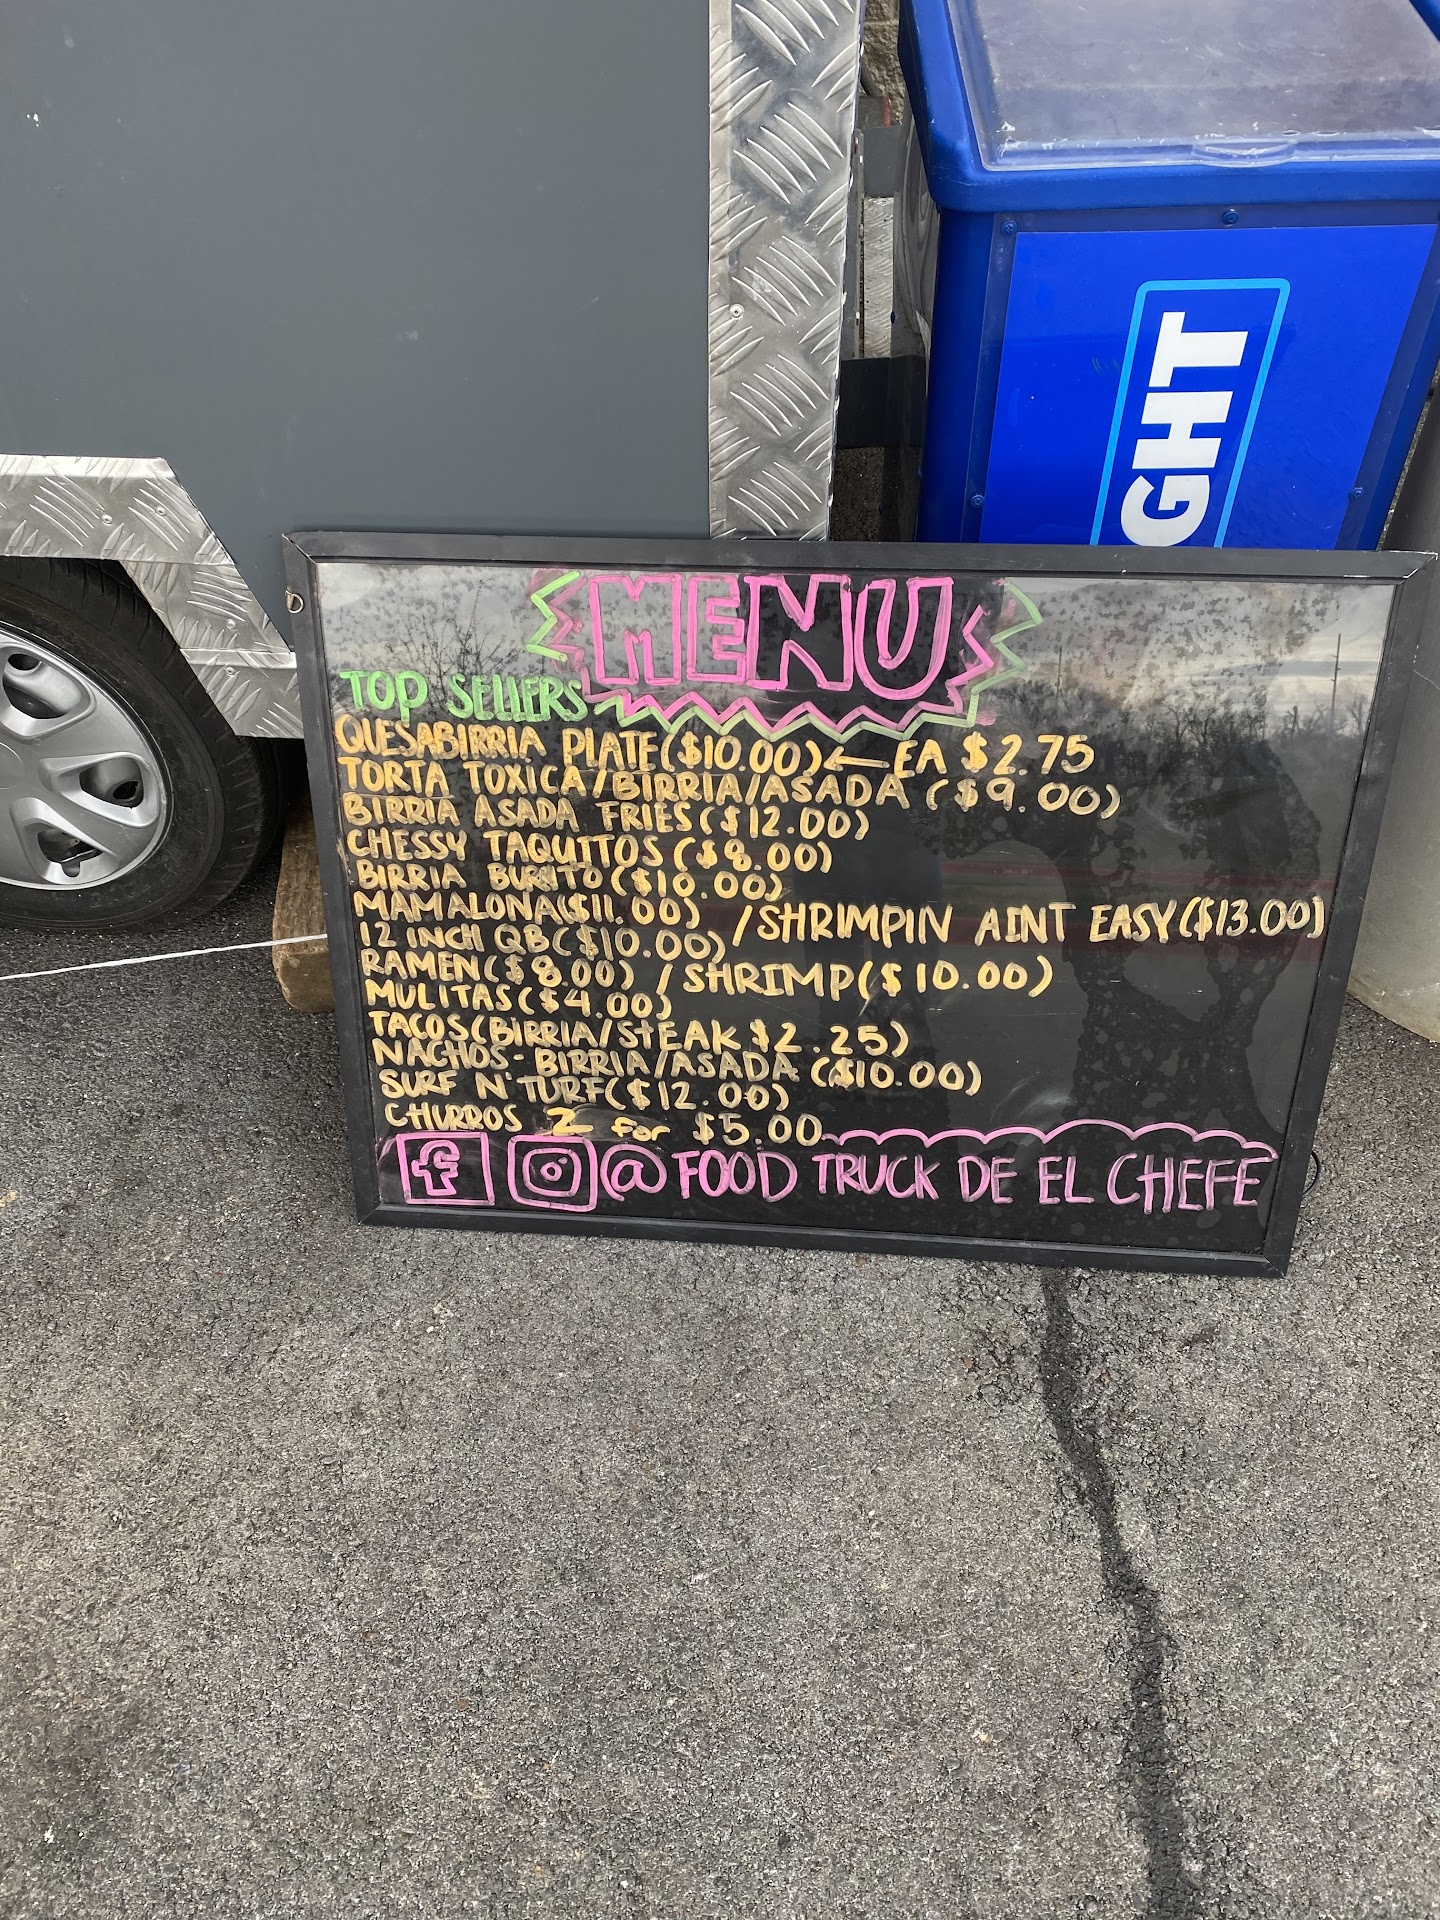 GHT
MENU
TOP SELLERS
QUESABIRRIA PLATE($10.00)← EA $2.75
TORTA TOXICA/BIRRIA/ASADA ($9.00)
BIRRIA ASADA FRIES($12.00)
CHESSY TAQUITOS ($8.00)
BIRRIA BURITO($10.00)
MAMALONA($11.00) /SHRIMPIN AINT EASY($13.00)
12 INCH QB($10.00)
RAMEN($8.00) / SHRIMP($10.00)
MULITAS($4.00)
TACOS(BIRRIA/STEAK $2.25)
NACHOS-BIRRIA/ASADA ($10.00)
SURF N' TURF($12.00)
CHURROS 2 for $5.00
f @FOOD TRUCK DE EL CHEFE